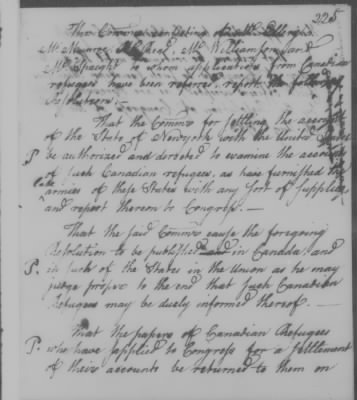 225
The Committee consisting of Mr. Ellery
Mr. Monroe Mr. Williamson and
Mr. Spaight to whom applications from Canadian
refugees have been referred, report the following
Resolutions.
That the Commr. for settling the accounts
of the State of Newyork with the United States
P be authorized and directed to examine the accounts
of such Canadian refugees, as have furnished the
late
armies of these States with any sort of supplies
and report thereon to Congress. —
That the said Commr. cause the foregoing
Resolution to be published in Canada and
P. in such of the States in the Union as he may
judge proper to the end that such Canadian
Refugees may be duely informed thereof. —
That the papers of Canadian Refugees
P. who have applied to Congress for a settlement
of their accounts be returned to them on